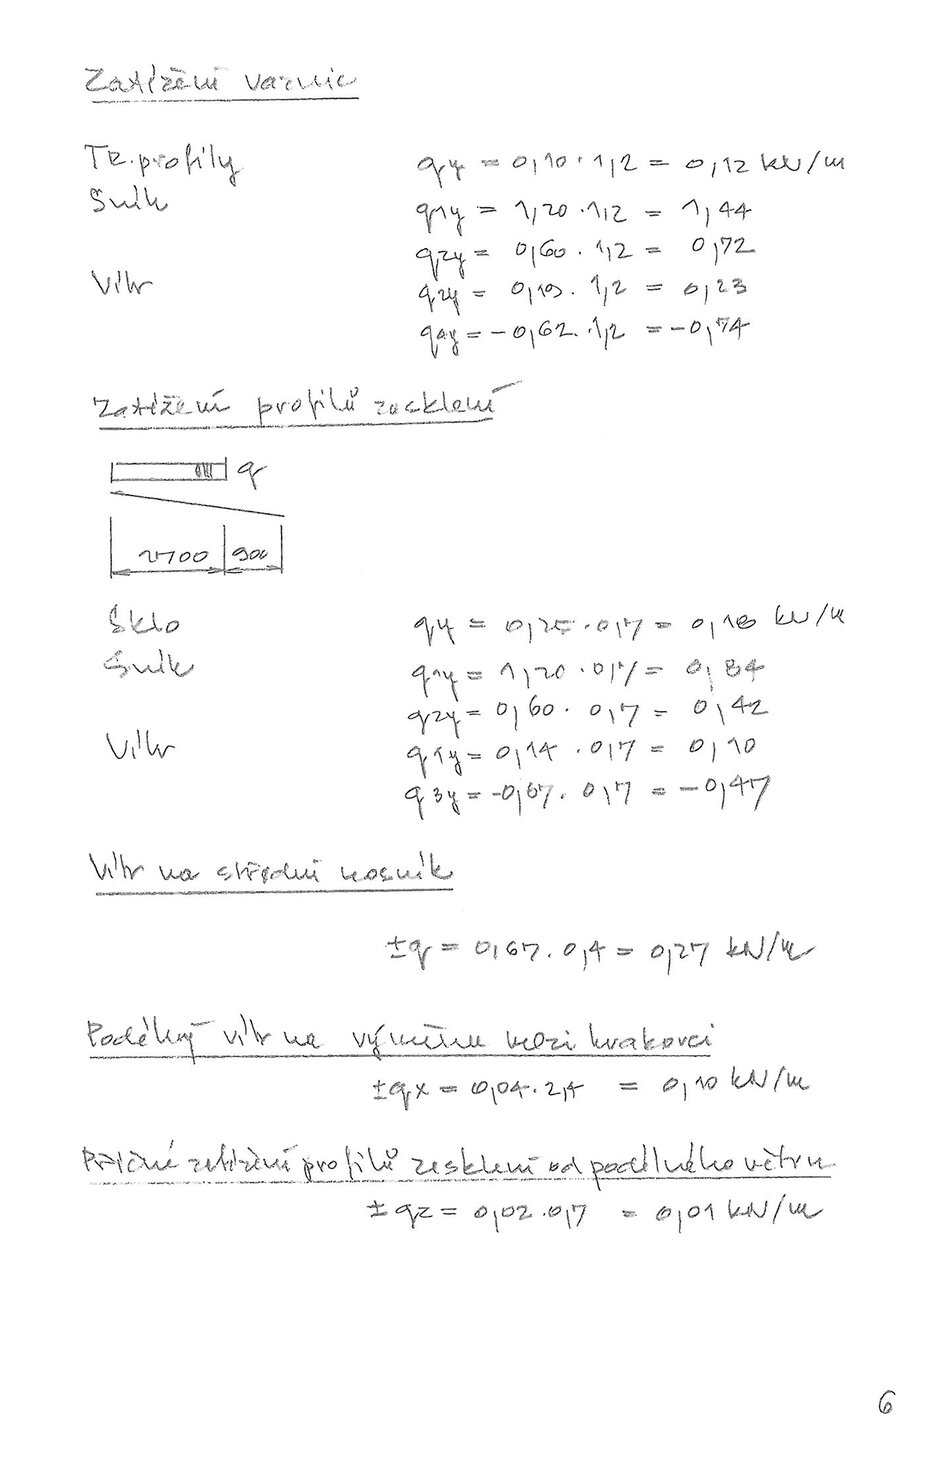 Zatížení vaznic
TR. profily qy = 0,10 · 1,2 = 0,12 kN/m
Sníh q1y = 1,20 · 1,2 = 1,44
q2y = 0,60 · 1,2 = 0,72
Vítr q2y = 0,19 · 1,2 = 0,23
q4y = -0,62 · 1,2 = -0,74
Zatížení profilů zasklení
q
2700 900
Sklo qy = 0,25 · 0,7 = 0,18 kN/m
Sníh q1y = 1,20 · 0,7 = 0,84
q2y = 0,60 · 0,7 = 0,42
Vítr q1y = 0,14 · 0,7 = 0,10
q3y = -0,67 · 0,7 = -0,47
Vítr na střední nosník
±q = 0,67 · 0,4 = 0,27 kN/m
Podélný vítr na výměnu mezi krakorci
±qx = 0,04 · 2,4 = 0,10 kN/m
Příčné zatížení profilů zasklení od podélného větru
±qz = 0,02 · 0,7 = 0,01 kN/m
6